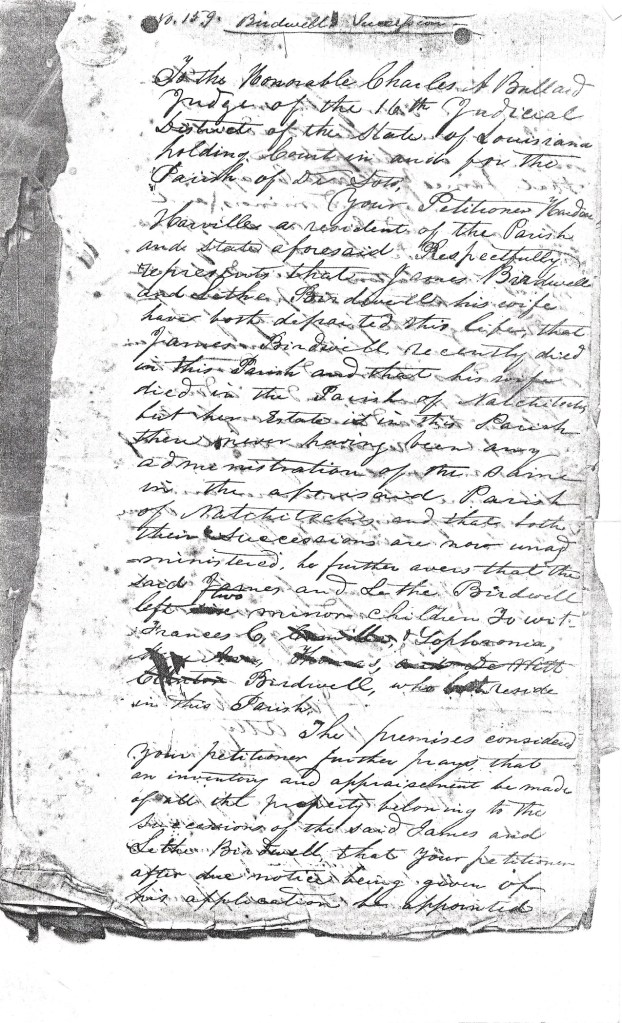 No. 159. Birdwell's Succession
To the Honorable Charles A Bullard
Judge of the 16th Judicial
District of the State of Louisiana
holding Court in and for the
Parish of De Soto,
Your Petitioner Hardin
Harville a resident of the Parish
and State aforesaid Respectfully
represents that James Birdwell
and Letha Birdwell his wife
have both departed this life, that
James Birdwell recently died
in this Parish and that his wife
died in the Parish of Natchitoches
but her Estate is in this Parish
there never having been any
administration of the same
in the aforesaid Parish
of Natchitoches and that both
their Successions are now unad
ministered, he further avers that the
said James and Letha Birdwell
left two minor children To wit.
Frances C, & Sophronia,
Birdwell, who reside
in this Parish.
The premises considered
your petitioner further prays, that
an inventory and appraisement be made
of all the property belonging to the
successions of the said James and
Letha Birdwell, that your petitioner
after due notice being given of
his application be appointed